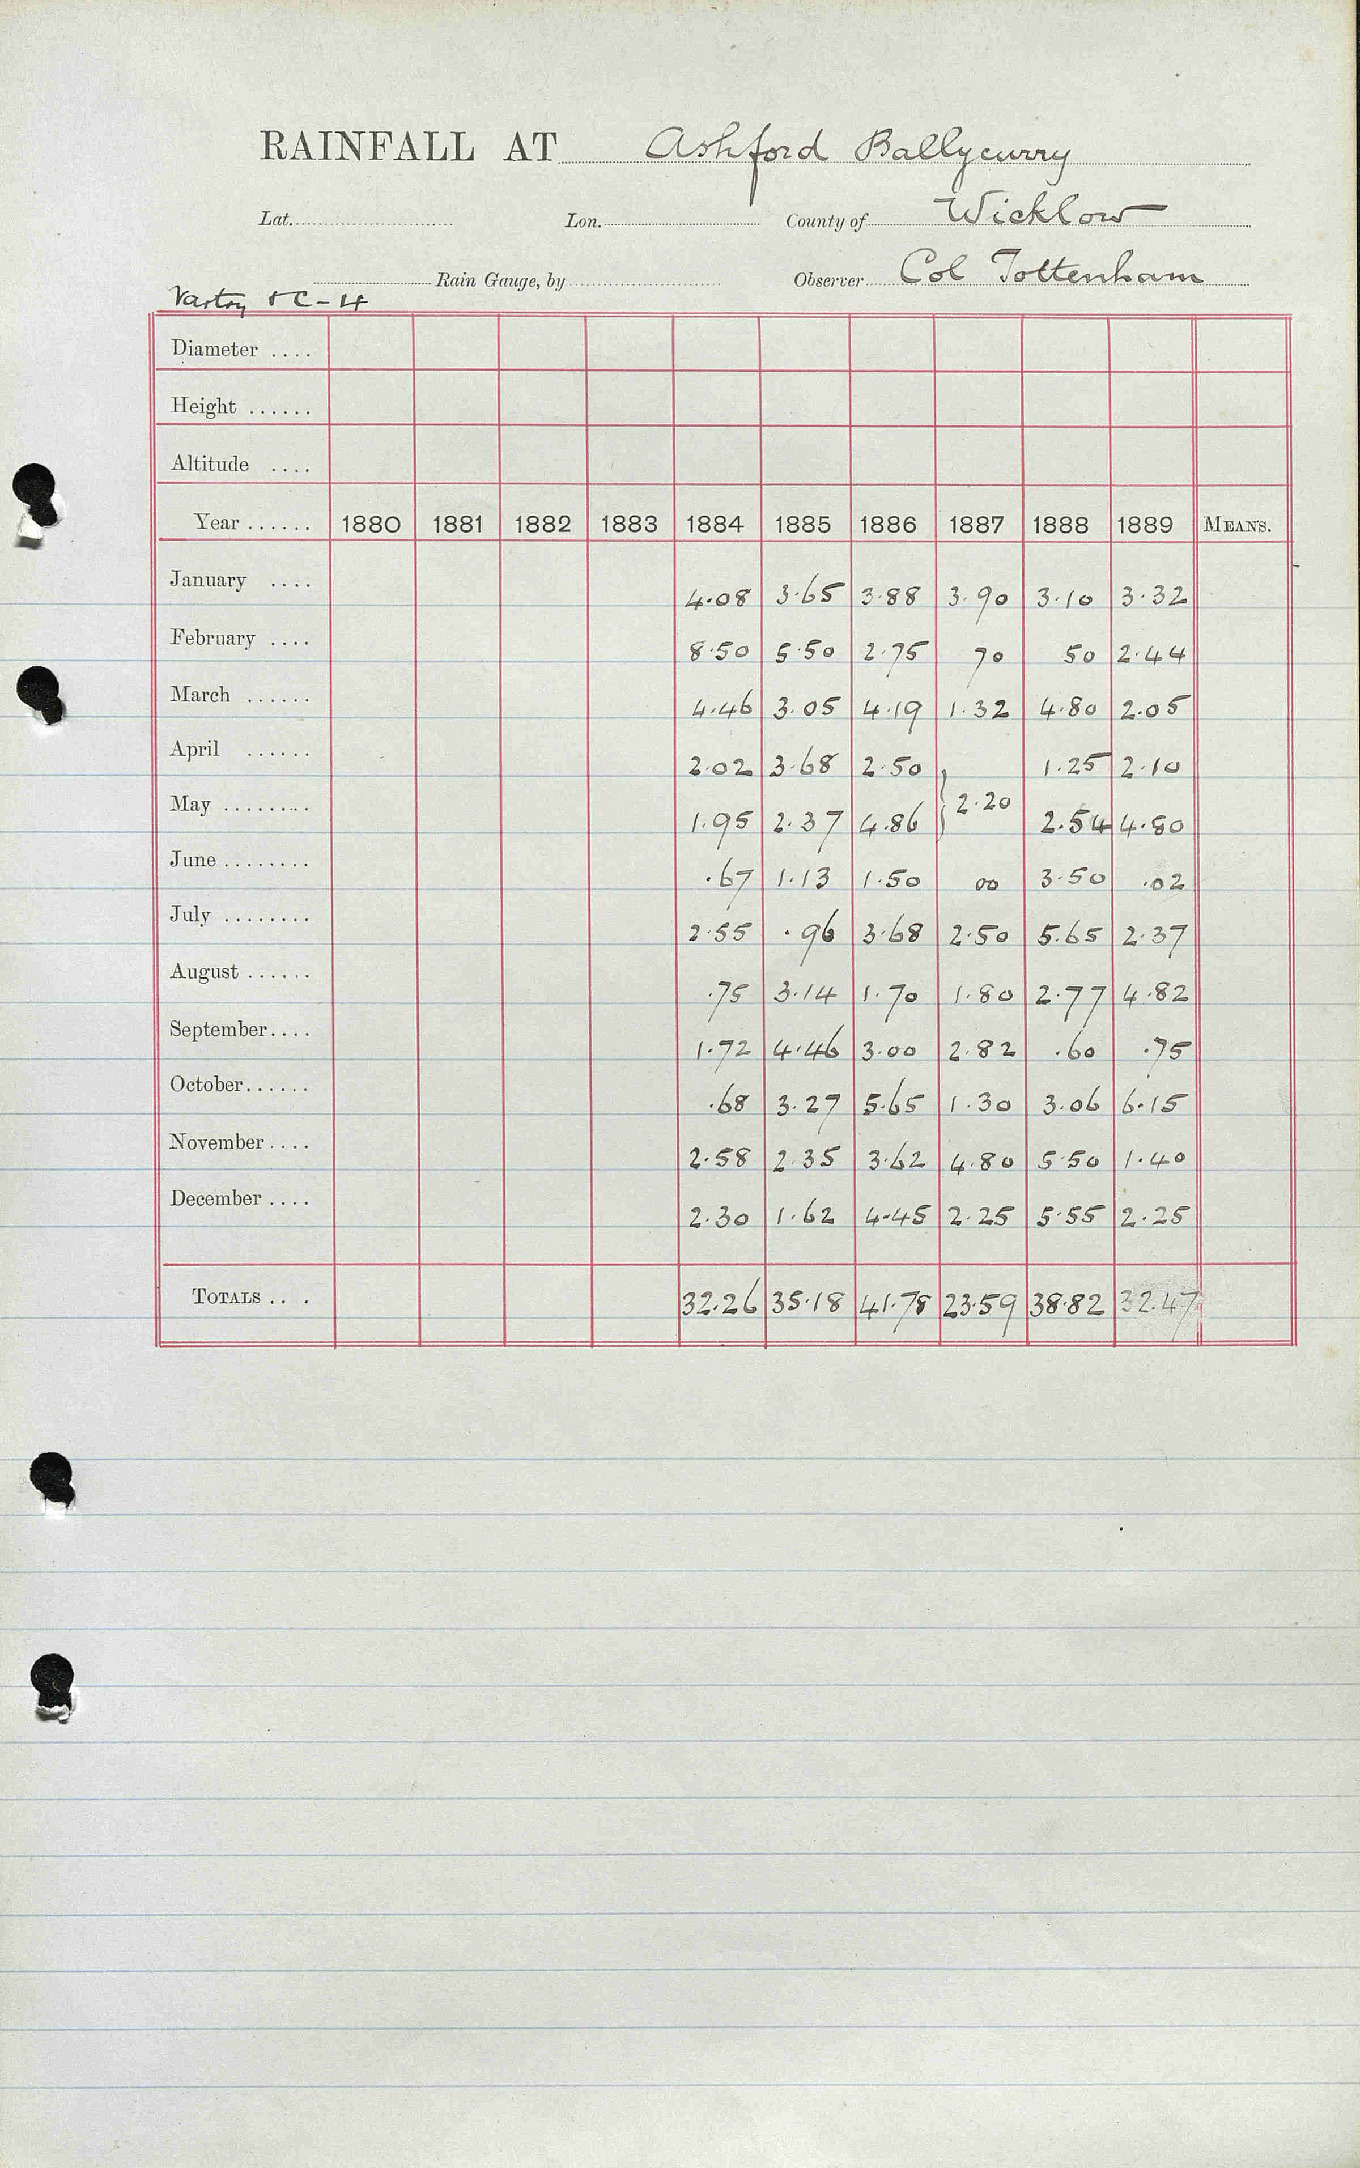 RAINFALL AT Ashford Ballycurry
Lat. Lon. County of Wicklow
Rain Gauge, by Observer Col Tottenham
Vartry
Diameter ....
Height ......
Altitude ....
Year ...... 1880 1881 1882 1883 1884 1885 1886 1887 1888 1889 MEANS.
January .... 4.08 3.65 3.88 3.90 3.10 3.32
February .... 8.50 5.50 2.75 70 50 2.44
March ...... 4.46 3.05 4.19 1.32 4.80 2.05
April ...... 2.02 3.68 2.50 1.25 2.10
May ......... 1.95 2.37 4.86 } 2.20 2.54 4.80
June ........ .67 1.13 1.50 00 3.50 .02
July ........ 2.55 .96 3.68 2.50 5.65 2.37
August ...... .75 3.14 1.70 1.80 2.77 4.82
September.... 1.72 4.46 3.00 2.82 .60 .75
October...... .68 3.27 5.65 1.30 3.06 6.15
November.... 2.58 2.35 3.62 4.80 5.50 1.40
December .... 2.30 1.62 4.45 2.25 5.55 2.25
TOTALS ... 32.26 35.18 41.78 23.59 38.82 32.47